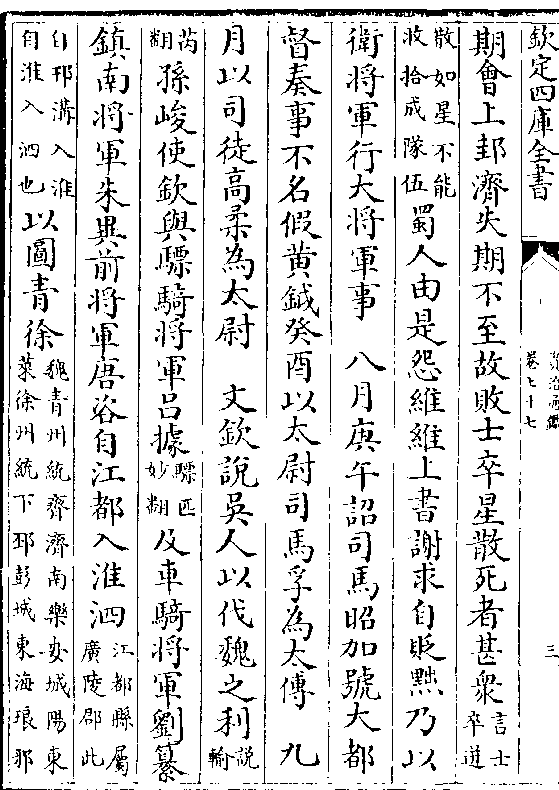 欽定四庫全書
資治通鑑
卷七十七
三
期會上邽濟失期不至故敗士卒星散死者甚衆言士卒迸
散如星不能收拾成隊伍蜀人由是怨維維上書謝求自貶黜乃以
衛將軍行大將軍事 八月庚午詔司馬昭加號大都
督奏事不名假黃鉞癸酉以太尉司馬孚為太傅 九
月以司徒高柔為太尉 文欽說吳人以伐魏之利說輸
芮翻孫峻使欽與驃騎將軍呂據驃匹妙翻及車騎將軍劉纂
鎮南將軍朱異前將軍唐咨自江都入淮泗江都縣屬廣陵郡此
自邗溝入淮自淮入泗也以圖青徐魏青州統齊濟南樂安城陽東萊徐州統下邳彭城東海琅邪